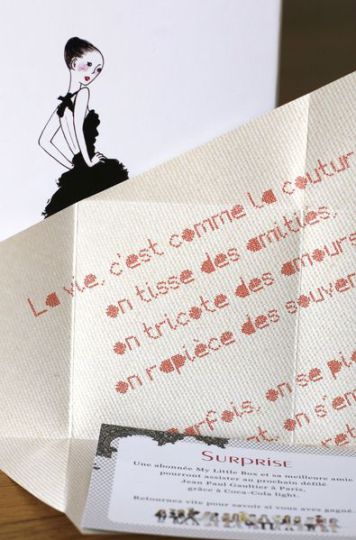 La vie, c'est comme la coutur
on tisse des amitiés,
on tricote des amours
on rapièce des souven
Parfois, on se pi
on s'en
SURPRISE
Une abonnée My Little Box et sa meilleure amie
pourront assister au prochain défilé
Jean Paul Gaultier à Paris,
grâce à Coca-Cola light.
Retournez vite pour savoir si vous avez gagné.